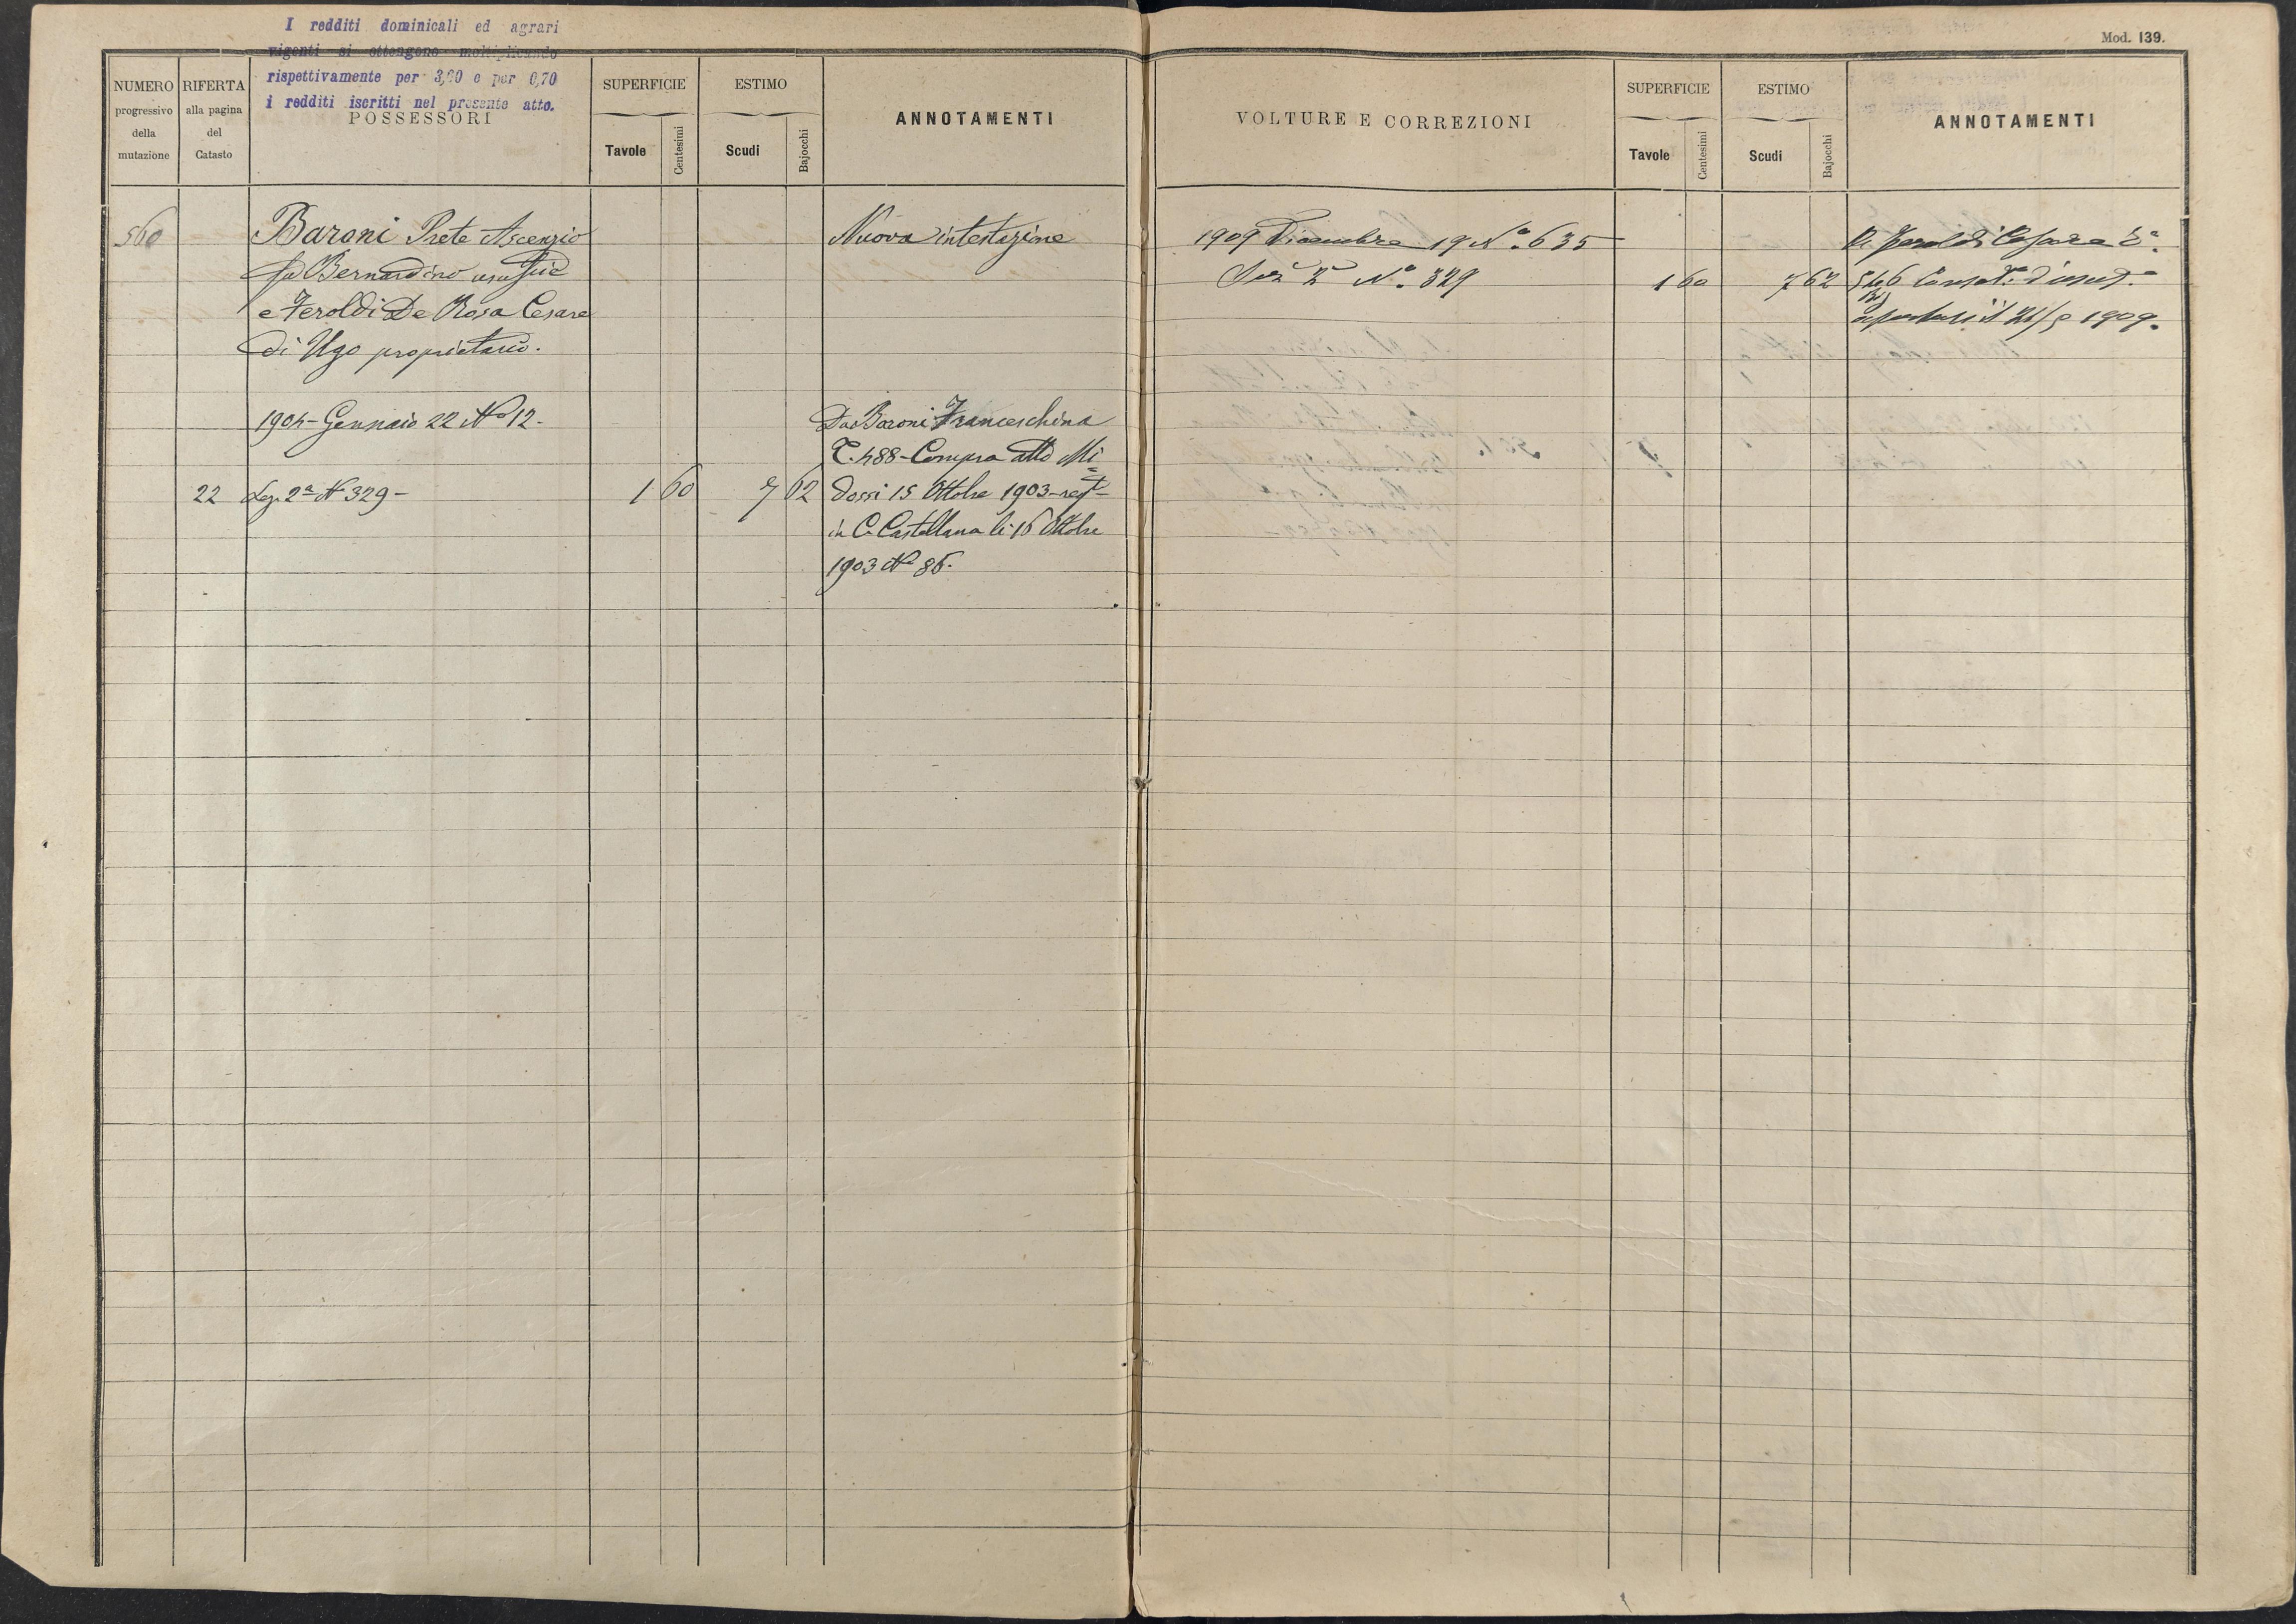 I redditi dominicali ed agrari
vigenti si ottengono moltiplicando
rispettivamente per 3,60 e per 0,70
i redditi iscritti nel presente atto.
NUMERO
progressivo
della
mutazione
RIFERTA
alla pagina
del
Catasto
POSSESSORI
SUPERFICIE
Tavole
Centesimi
ESTIMO
Scudi
Bajocchi
ANNOTAMENTI
560
Baroni Prete Ascenzio
fu Bernardino
e Feroldi De Rosa Cesare
di Ugo proprietario.
Nuova intestazione
1904 - Gennaio 22 No 12.
22
Sez. 2a No 329 -
1
60
7
62
Da Baroni Franceschina
C. 488 - Compra atto Mi
dossi 15 Ottobre 1903 - regt
in C. Castellana li 16 Ottobre
1903 No 86.
Mod. 139.
VOLTURE E CORREZIONI
SUPERFICIE
Tavole
Centesimi
ESTIMO
Scudi
Bajocchi
ANNOTAMENTI
1909 Dicembre 19 No. 635
Sez 2a No. 329
1
60
7
62
A Feroldi Cesare C.a
546 Consod. d'usuf.
1909.